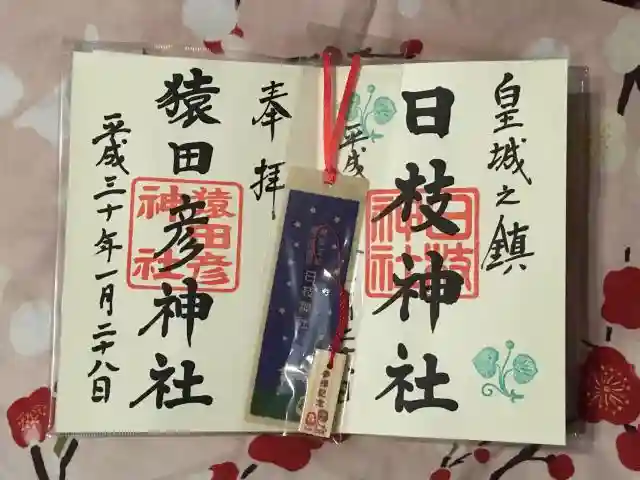 皇城之鎮
日枝神社
日枝神社
平成
奉拝
猿田彦神社
猿田彦神社
平成三十年一月二十八日
日枝神社
参拝記念